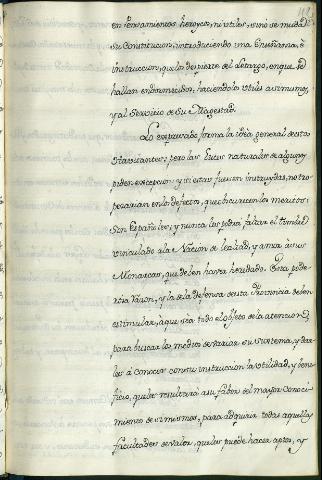 en Pensamientos heroycos, ni utiles, sino se muda
su Constitucion, introduciendo una Enseñanza, è
instruccion, que los despierte del Letargo, en que se
hallan endormecidos, haciendolos utiles asi mismos,
y al Servicio de Su Magestad.
Lo expresado forma la idea general de estos
Havitantes; pero las Luces naturales de algunos
piden excepcion, y si estas fuesen instruydas, no tro
pezarian en los defectos, que obscurecen los meritos:
Son Españoles, y nunca les podrá faltar el timbre
vinculado ala Nacion de lealtad, y amor à sus
Monarcas, que deben haver heredado. Esta pode
rosa Razon, y la de la defensa de esta Provincia deben
estimular, à que sea todo el objeto de la atencion
para buscar los medios de variar su sistema, y dar
les à conocer con su instruccion la utilidad, y bene
ficio, que les resultará a su favor del mayor conoci
miento de si mismos, para adquirir todas aquellas
facultades de valor, que les puede hacer aptos, y